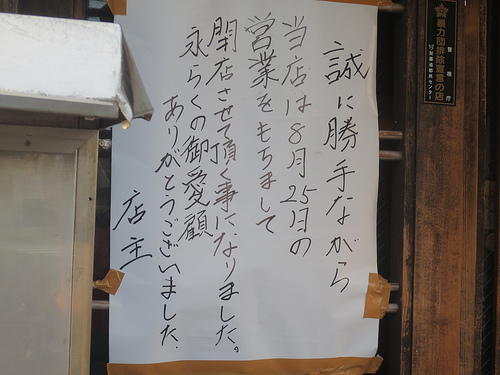 誠に勝手ながら
当店は8月25日の
営業をもちまして
閉店させて頂く事になりました。
永らくの御愛顧
ありがとうございました.
店主
暴力団排除宣言の店
警視庁